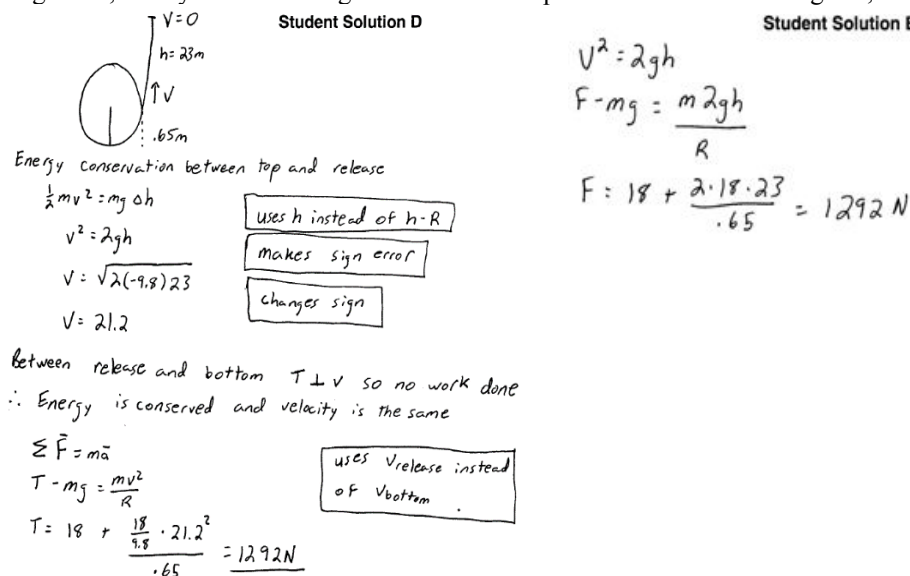 Student Solution D
V=0
h=23m
↑V
.65m
Energy conservation between top and release
½mv²=mg Δh
v²=2gh
V=√2(-9.8)23
V=21.2
uses h instead of h-R
makes sign error
changes sign
Between release and bottom T⊥v so no work done
∴ Energy is conserved and velocity is the same
ΣF̄=mā
T-mg=mv²/R
T=18+(18/9.8·21.2²)/.65=1292N
uses Vrelease instead
of Vbottom
Student Solution
V²=2gh
F-mg=m2gh/R
F=18+2·18·23/.65=1292N